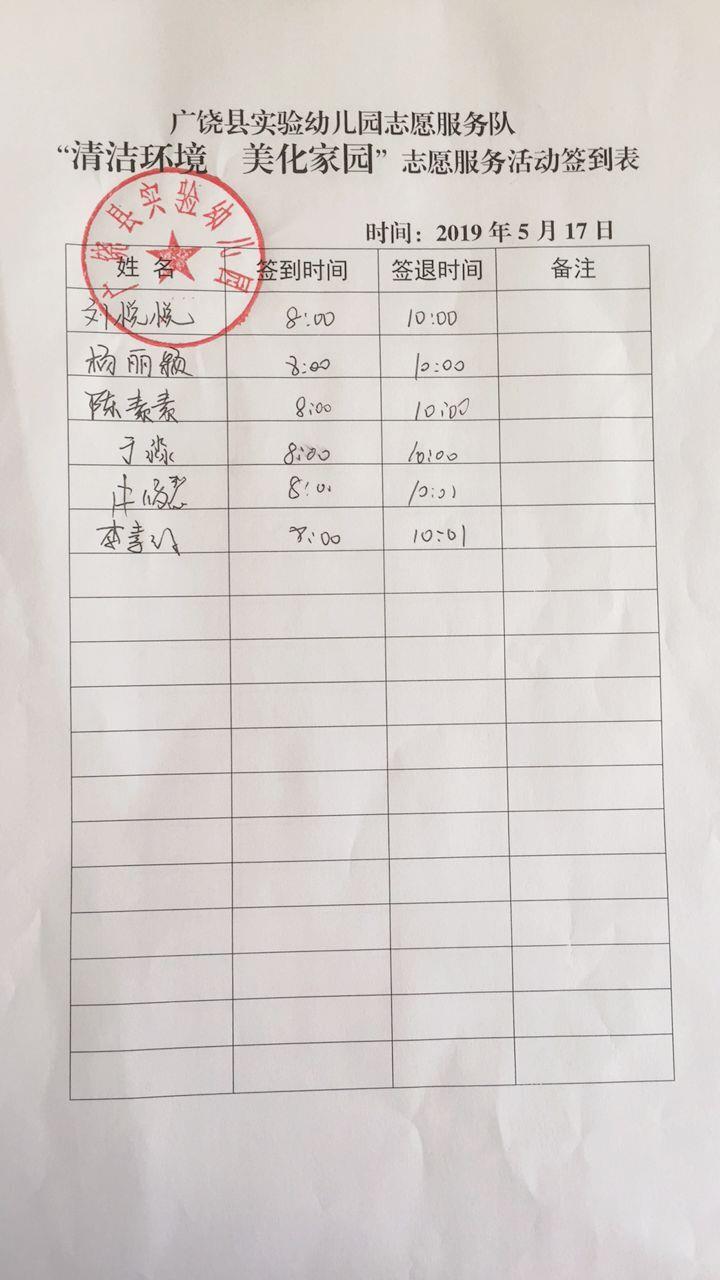 广饶县实验幼儿园志愿服务队
“清洁环境 美化家园”志愿服务活动签到表
广饶县实验幼儿园
时间：2019 年 5 月 17 日
姓 名 签到时间 签退时间 备注
刘悦悦 8:00 10:00
杨丽颖 8:00 10:00
陈素素 8:00 10:00
于淼 8:00 10:00
8:01 10:01
李 8:00 10:01